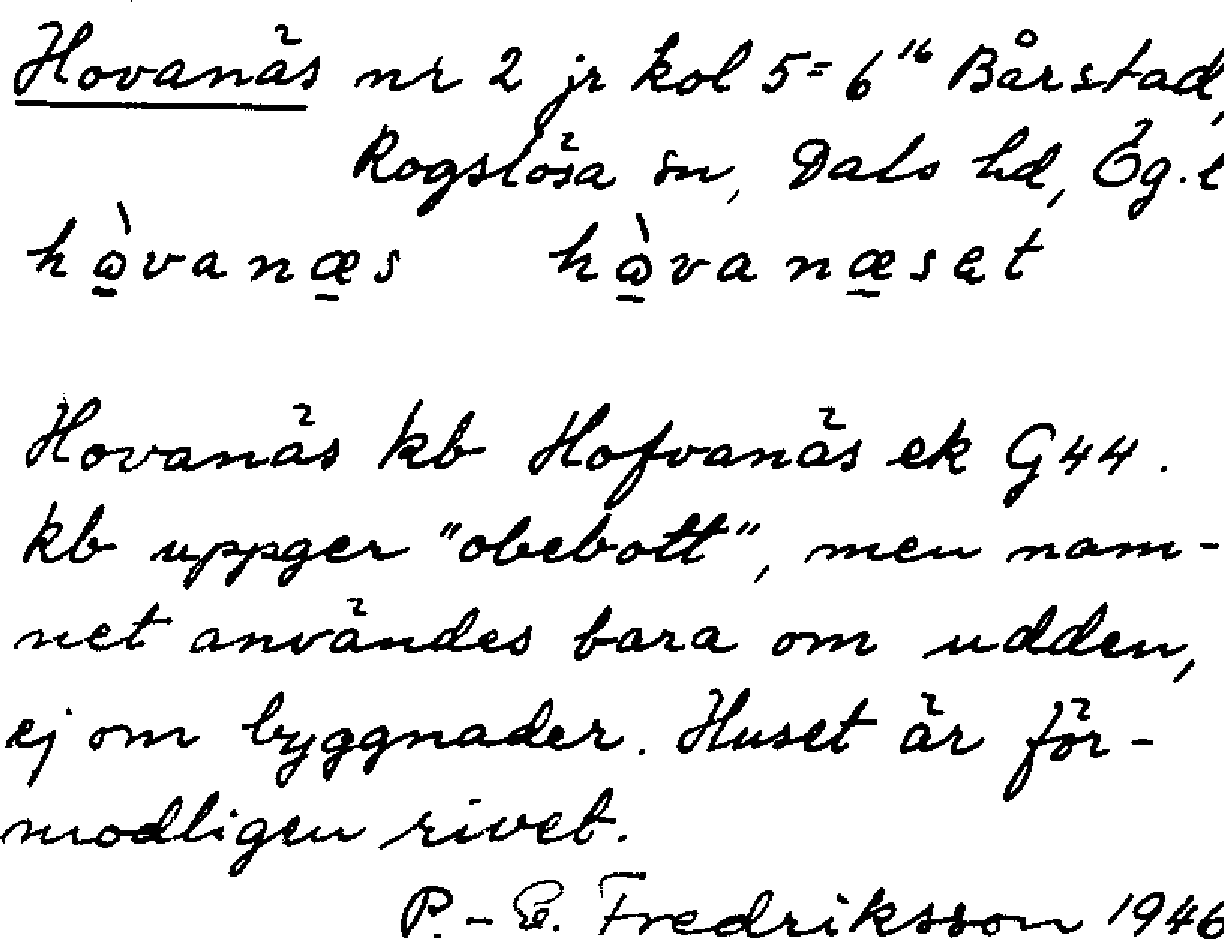 Hovanäs nr 2 jr kol 5 = 6¹⁶ Bårstad,
Rogslösa sn, Dals hd, Ög.l
hòvanæs hòvanæset
Hovanäs kb Hofvanäs ek G44.
kb uppger "obebott", men nam-
net användes bara om udden,
ej om byggnader. Huset är för-
modligen rivet.
P.-E. Fredriksson 1946